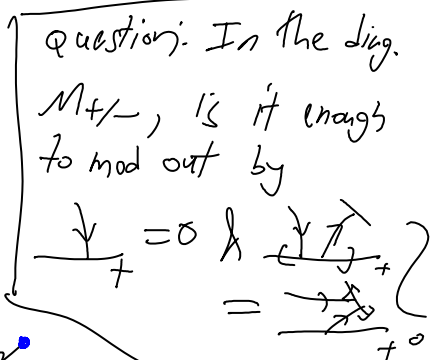 Question: In the diag.
M+/-, is it enough
to mod out by
+ = 0 &
+
=
+